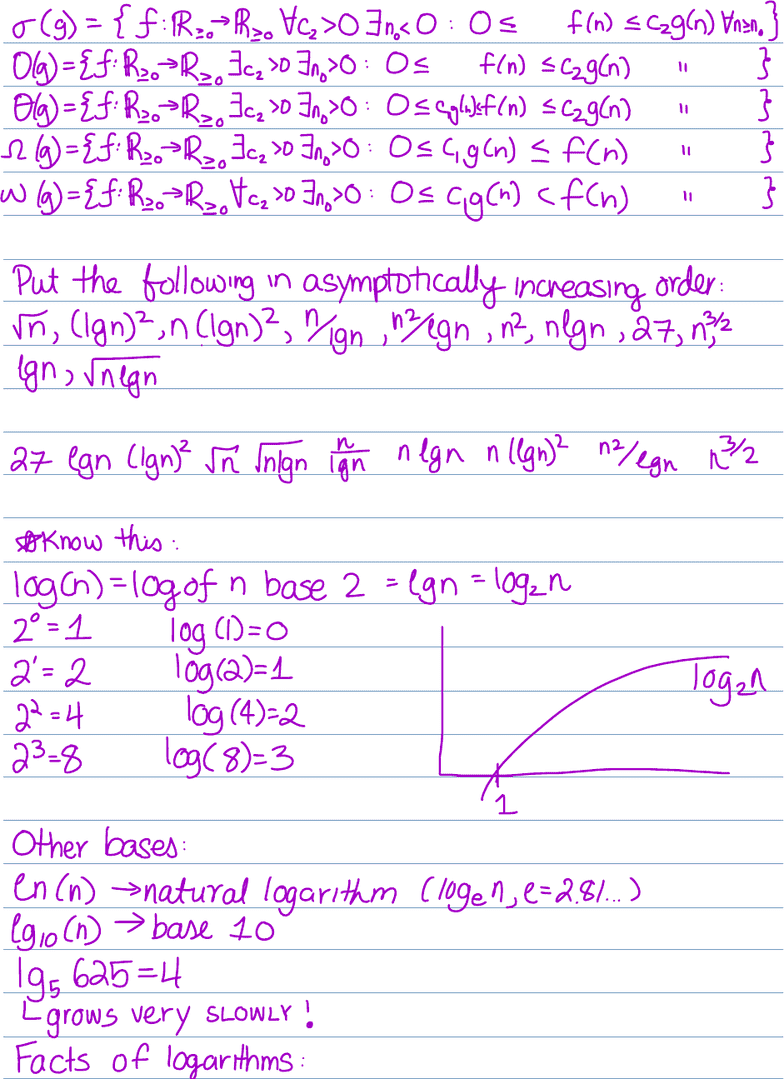 σ(g) = { f: ℝ≥₀→ℝ≥₀ ∀c₂>0 ∃n₀<0 : 0 ≤ f(n) ≤ c₂g(n) ∀n≥n₀}
O(g)={f: ℝ≥₀→ℝ≥₀ ∃c₂>0 ∃n₀>0 : 0 ≤ f(n) ≤ c₂g(n) " }
Θ(g)={f: ℝ≥₀→ℝ≥₀ ∃c₂>0 ∃n₀>0 : 0 ≤ c₁g(n)≤f(n) ≤ c₂g(n) " }
Ω(g)={f: ℝ≥₀→ℝ≥₀ ∃c₂>0 ∃n₀>0 : 0 ≤ c₁g(n) ≤ f(n) " }
ω(g)={f: ℝ≥₀→ℝ≥₀ ∀c₂>0 ∃n₀>0 : 0 ≤ c₁g(n) < f(n) " }
Put the following in asymptotically increasing order:
√n, (lgn)², n(lgn)², n/lgn, n²/lgn, n², nlgn, 27, n^3/2,
lgn, √nlgn
27 lgn (lgn)² √n √nlgn n/lgn nlgn n(lgn)² n²/lgn n^3/2
☆Know this:
log(n) = log of n base 2 = lgn = log₂n
2⁰ = 1 log(1)=0
2¹ = 2 log(2)=1
2² = 4 log(4)=2
2³=8 log(8)=3
log₂n
1
Other bases:
ln(n) → natural logarithm (logₑn, e=2.81...)
lg₁₀(n) → base 10
lg₅ 625=4
└grows very SLOWLY!
Facts of logarithms: